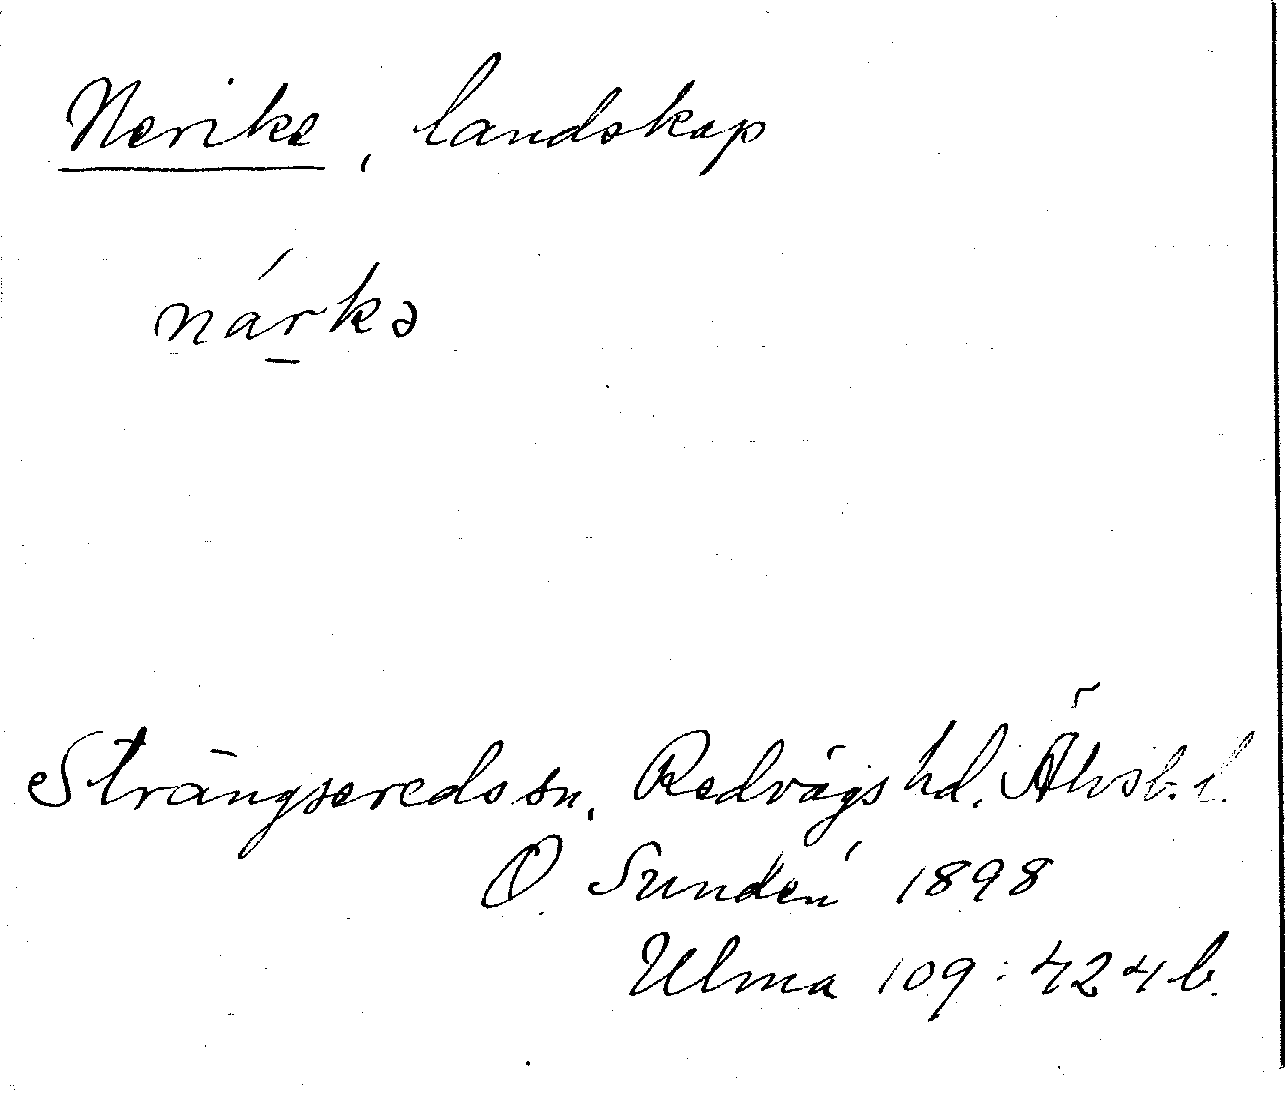 Nerike, landskap
nárkə
Strängsereds sn. Redvägs hd. Älvsb. l.
O. Sundén 1898
Ulma 109:424 b.